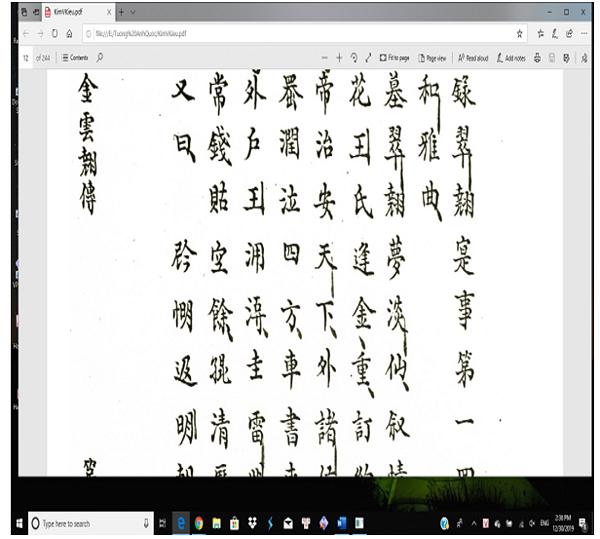 KimVKieu.pdf
file:///E:/Tuong%20AnhQuoc/KimVKieu.pdf
12 of 244 Contents Fit to page Page view Read aloud Add notes
錄翠翹寔事第一
和雅曲
墓翠翹夢淡仙叙
花王氏逢金重訂
帝治安天下外諸
潤泣四方車書
外户王淂圭雷
常錢貼空餘清
又曰惘返明
金雲翹傳
Type here to search
ENG
2:38 PM
12/30/2019